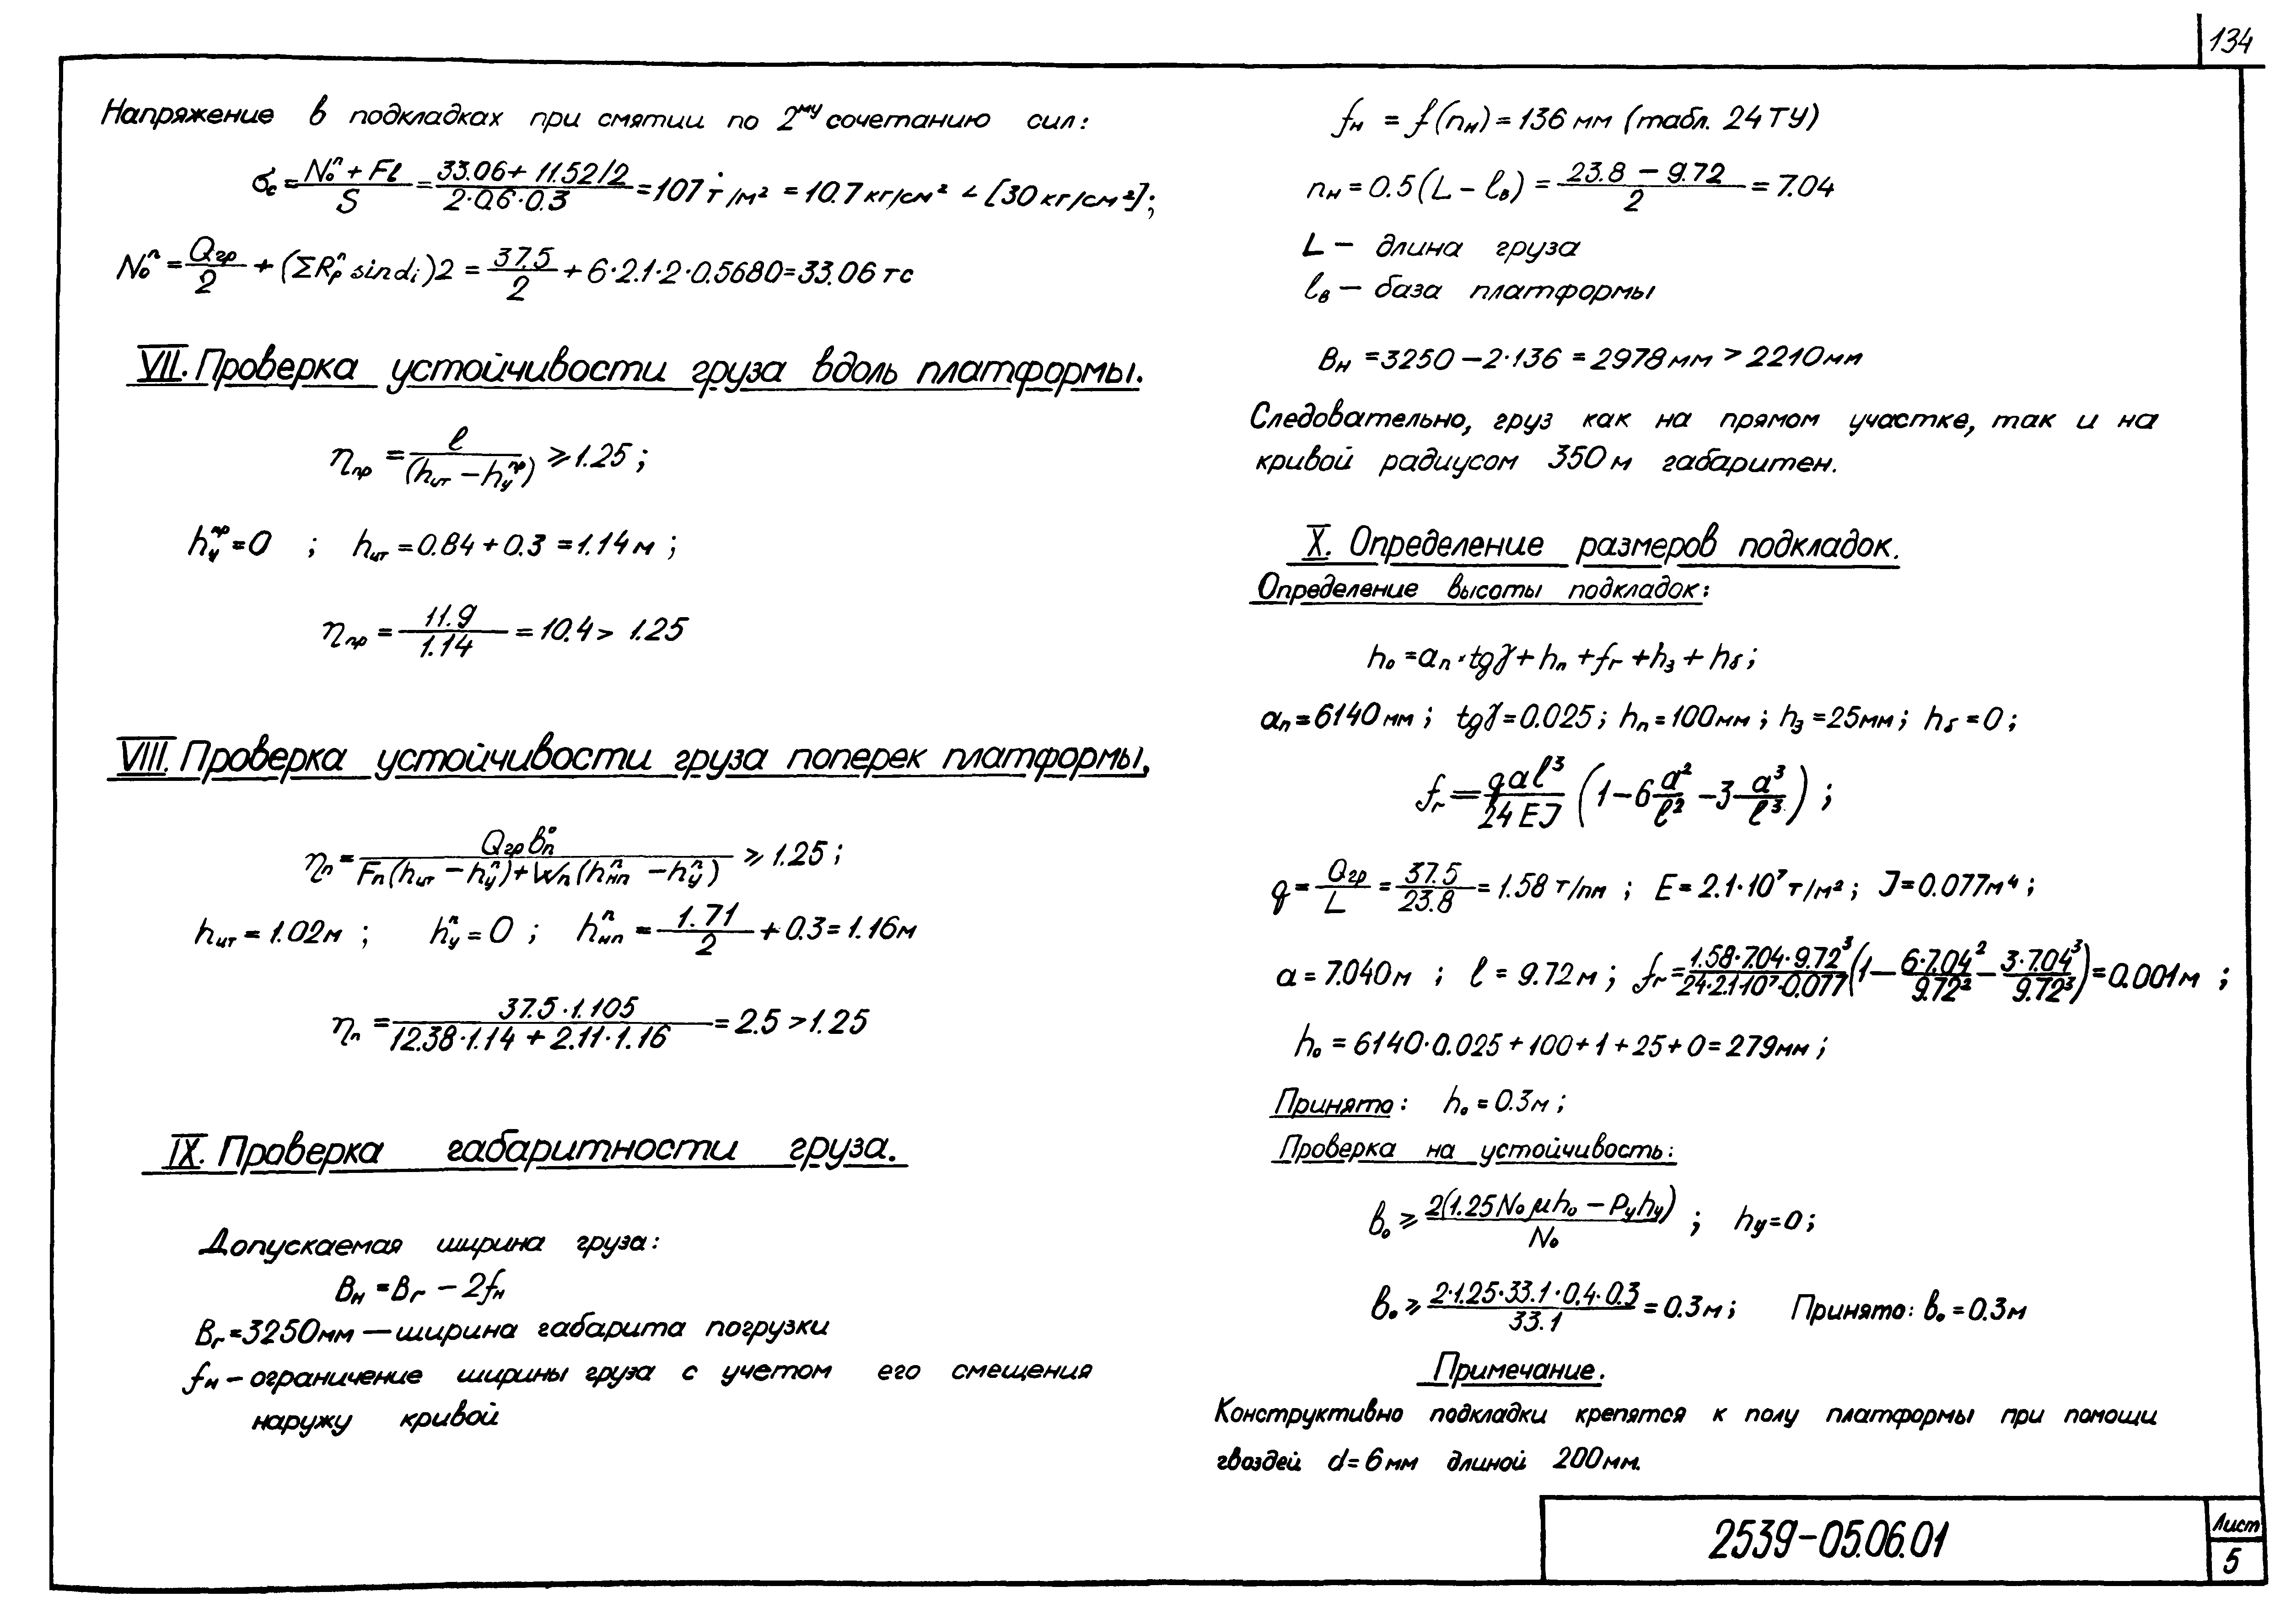 134
Напряжение в подкладках при смятии по 2му сочетанию сил:
σc = (N₀ⁿ + Fℓ)/S = (33.06 + 11.52/2)/(2·0.6·0.3) = 107 т/м² = 10.7 кг/см² < [30 кг/см²];
N₀ⁿ = Qгр/2 + (ΣRрⁿ sin dᵢ)2 = 37.5/2 + 6·2.1·2·0.5680 = 33.06 тс
VII. Проверка устойчивости груза вдоль платформы.
ηпр = ℓ/(hцт − hупр) ⩾ 1.25;
hупр = 0 ; hцт = 0.84 + 0.3 = 1.14 м;
ηпр = 11.9/1.14 = 10.4 > 1.25
VIII. Проверка устойчивости груза поперек платформы,
ηп = Qгр вп⁰/(Fп(hцт − hуⁿ) + Wп(hнпⁿ − hуⁿ)) ⩾ 1.25;
hцт = 1.02 м ; hуⁿ = 0 ; hнпⁿ = 1.71/2 + 0.3 = 1.16 м
ηп = 37.5·1.105/(12.38·1.14 + 2.11·1.16) = 2.5 > 1.25
IX. Проверка габаритности груза.
Допускаемая ширина груза:
Bн = Bг − 2fн
Bг = 3250 мм — ширина габарита погрузки
fн — ограничение ширины груза с учетом его смещения
наружу кривой
fн = f(nн) = 136 мм (табл. 24 ТУ)
nн = 0.5(L − ℓв) = (23.8 − 9.72)/2 = 7.04
L — длина груза
ℓв — база платформы
Bн = 3250 − 2·136 = 2978 мм > 2210 мм
Следовательно, груз как на прямом участке, так и на
кривой радиусом 350 м габаритен.
X. Определение размеров подкладок.
Определение высоты подкладок:
h₀ = aп · tgγ + hп + fг + hз + hδ;
aп = 6140 мм; tgγ = 0.025; hп = 100 мм; hз = 25 мм; hδ = 0;
fг = qaℓ³/24EJ (1 − 6 a²/ℓ² − 3 a³/ℓ³);
q = Qгр/L = 37.5/23.8 = 1.58 т/пм ; E = 2.1·10⁷ т/м²; J = 0.077 м⁴;
a = 7.040 м ; ℓ = 9.72 м; fг = 1.58·7.04·9.72³/24·2.1·10⁷·0.077 (1 − 6·7.04²/9.72² − 3·7.04³/9.72³) = 0.001 м ;
h₀ = 6140·0.025 + 100 + 1 + 25 + 0 = 279 мм;
Принято: h₀ = 0.3 м;
Проверка на устойчивость:
в₀ ⩾ 2(1.25 N₀ μh₀ − Pуhу)/N₀ ; hу = 0;
в₀ ⩾ 2·1.25·33.1·0.4·0.3/33.1 = 0.3 м; Принято: в₀ = 0.3 м
Примечание.
Конструктивно подкладки крепятся к полу платформы при помощи
гвоздей d = 6 мм длиной 200 мм.
2539-05.06.01
Лист
5